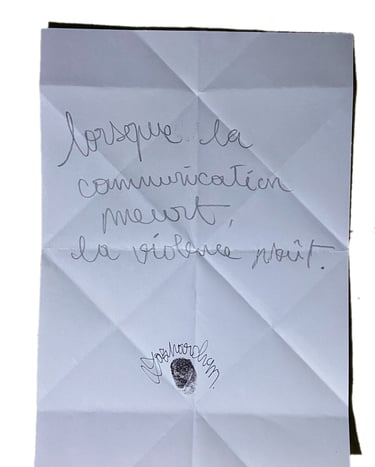 lorsque la
communication
meurt,
la violence naît.